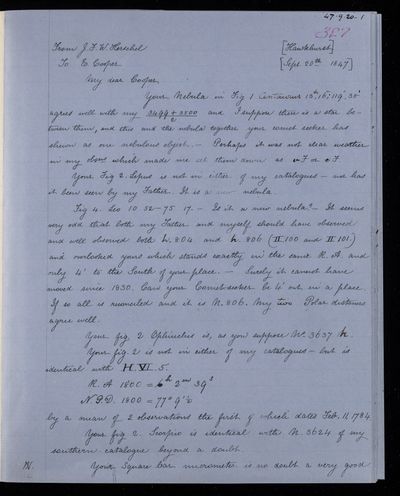 47.9.20.1
From J. F. W. Herschel [Hawkhurst]
To E. Cooper [Sept. 20th 1847]
My dear Cooper
Your Nebula in Fig 1 Centaurus
agrees well with my 3499 + 3500 / 2 and I suppose there is a star be-
tween them, and this and the nebula together your comet seeker has
shewn as one nebulous object. – Perhaps it was not clear weather
in my obsns which made me set them down as
Your Fig 2. Lepus is not in either of my catalogues – nor has
it been seen by my Father. It is a new nebula.
Fig 4. Leo 10 52 – 75 17. – Is it a new nebula? – It seems
very odd that both my Father and myself should have observed
and well observed both h. 804 and h. 806 (II.100 and II 101)
and overlooked yours which stands exactly in the same R. A. and
only 4' to the South of your place. – Surely it cannot have
moved since 1830. Can your Comet-seeker be 4' out in a place
If so all is reconciled and it is N. 806. My two Polar distances
agree well.
Your fig. 2 Ophiuchus is, as you suppose No. 3637 h.
Your fig. 2 is not in either of my catalogues – but is
identical with H. VI. 5.
R. A 1800 = 6h 2m 39s
N.P.D. 1800 = 77°
by a mean of 2 observations the first of which dates Feb. 11, 1784
Your fig. 2 Scorpio is identical with N. 3624 of my
southern catalogue beyond a doubt.
Your Square bar micrometer is no doubt a very good